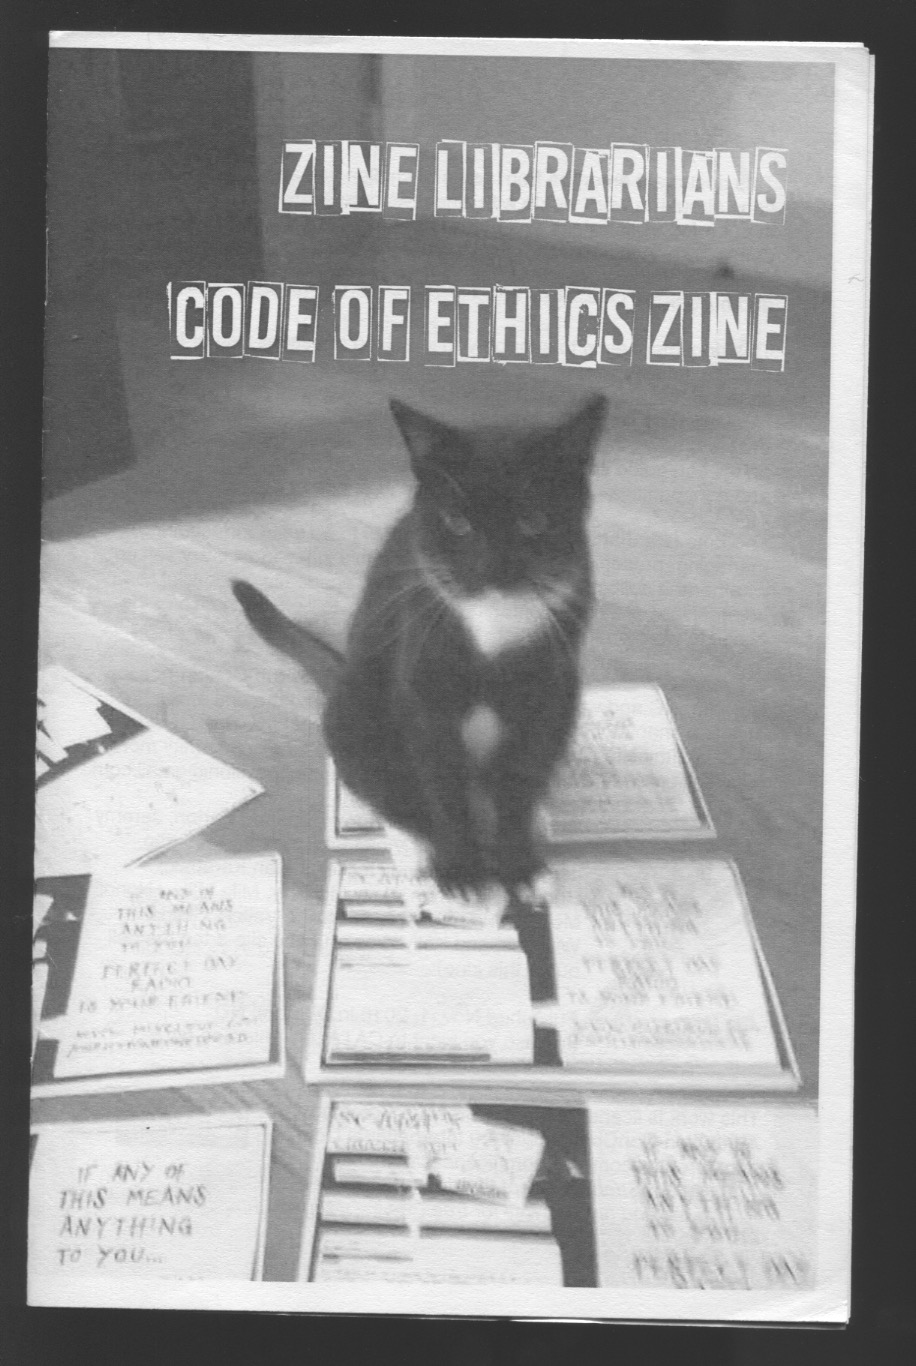 ZINE LIBRARIANS
CODE OF ETHICS ZINE
IF ANY OF
THIS MEANS
ANYTHING
TO YOU...
PERFECT DAY
RADIO
IS YOUR FRIEND
THIS MEANS
ANYTHING
TO YOU
PERFECT DAY
RADIO
IS YOUR FRIEND
IF ANY OF
THIS MEANS
ANYTHING
TO YOU...
IF ANY OF
THIS MEANS
ANYTHING
TO YOU...
PERFECT DAY